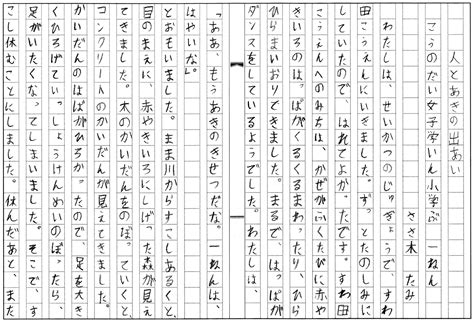 人とあきの出あい
こうのだい女子学いん小学ぶ 一ねん
ささ木 たみ
わたしは、せいかつのじゅぎょうで、すわ
田こうえんにいきました。ずっとたのしみに
していたので、はれてよかったです。すわ田
こうえんへのみちは、かぜがふくたびに赤や
きいろのはっぱがくるくるまわったり、ひら
ひらまいおりてきました。まるで、はっぱが
ダンスをしているようでした。わたしは、
「ああ、もうあきのきせつだな。一ねんは、
はやいな。」
とおもいました。まま川からすこしあるくと、
目のまえに、赤やきいろにしげった森が見え
てきました。木のかいだんをのぼっていくと、
コンクリートのかいだんが見えてきました。
かいだんのはばがひろかったので、足を大き
くひろげていっしょうけんめいのぼったら、
足がいたくなってしまいました。そこで、す
こし休むことにしました。休んだあと、また